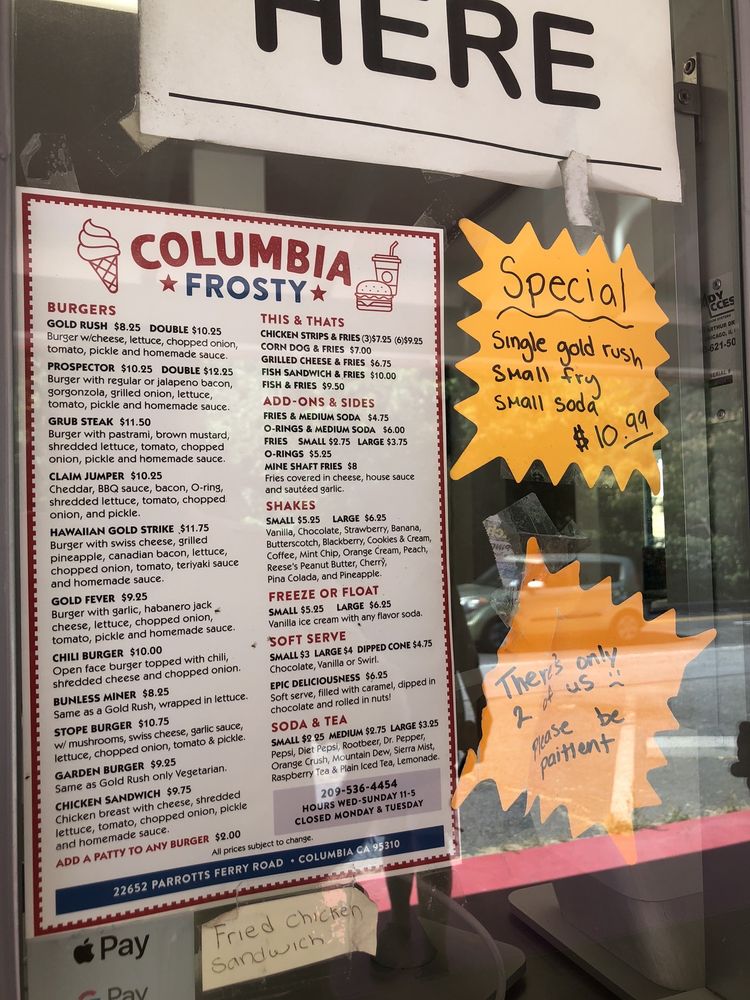 HERE
COLUMBIA
FROSTY
BURGERS
GOLD RUSH $8.25 DOUBLE $10.25
Burger w/cheese, lettuce, chopped onion,
tomato, pickle and homemade sauce.
PROSPECTOR $10.25 DOUBLE $12.25
Burger with regular or jalapeno bacon,
gorgonzola, grilled onion, lettuce,
tomato, pickle and homemade sauce.
GRUB STEAK $11.50
Burger with pastrami, brown mustard,
shredded lettuce, tomato, chopped
onion, pickle and homemade sauce.
CLAIM JUMPER $10.25
Cheddar, BBQ sauce, bacon, O-ring,
shredded lettuce, tomato, chopped
onion, and pickle.
HAWAIIAN GOLD STRIKE $11.75
Burger with swiss cheese, grilled
pineapple, canadian bacon, lettuce,
chopped onion, tomato, teriyaki sauce
and homemade sauce.
GOLD FEVER $9.25
Burger with garlic, habanero jack
cheese, lettuce, chopped onion,
tomato, pickle and homemade sauce.
CHILI BURGER $10.00
Open face burger topped with chili,
shredded cheese and chopped onion.
BUNLESS MINER $8.25
Same as a Gold Rush, wrapped in lettuce.
STOPE BURGER $10.75
w/ mushrooms, swiss cheese, garlic sauce,
lettuce, chopped onion, tomato & pickle.
GARDEN BURGER $9.25
Same as Gold Rush only Vegetarian.
CHICKEN SANDWICH $9.75
Chicken breast with cheese, shredded
lettuce, tomato, chopped onion, pickle
and homemade sauce.
ADD A PATTY TO ANY BURGER $2.00
THIS & THATS
CHICKEN STRIPS & FRIES (3)$7.25 (6)$9.25
CORN DOG & FRIES $7.00
GRILLED CHEESE & FRIES $6.75
FISH SANDWICH & FRIES $10.00
FISH & FRIES $9.50
ADD-ONS & SIDES
FRIES & MEDIUM SODA $4.75
O-RINGS & MEDIUM SODA $6.00
FRIES SMALL $2.75 LARGE $3.75
O-RINGS $5.25
MINE SHAFT FRIES $8
Fries covered in cheese, house sauce
and sautéed garlic.
SHAKES
SMALL $5.25 LARGE $6.25
Vanilla, Chocolate, Strawberry, Banana,
Butterscotch, Blackberry, Cookies & Cream,
Coffee, Mint Chip, Orange Cream, Peach,
Reese's Peanut Butter, Cherry,
Pina Colada, and Pineapple.
FREEZE OR FLOAT
SMALL $5.25 LARGE $6.25
Vanilla ice cream with any flavor soda.
SOFT SERVE
SMALL $3 LARGE $4 DIPPED CONE $4.75
Chocolate, Vanilla or Swirl.
EPIC DELICIOUSNESS $6.25
Soft serve, filled with caramel, dipped in
chocolate and rolled in nuts!
SODA & TEA
SMALL $2.25 MEDIUM $2.75 LARGE $3.25
Pepsi, Diet Pepsi, Rootbeer, Dr. Pepper,
Orange Crush, Mountain Dew, Sierra Mist,
Raspberry Tea & Plain Iced Tea, Lemonade.
209-536-4454
HOURS WED-SUNDAY 11-5
CLOSED MONDAY & TUESDAY
All prices subject to change.
22652 PARROTTS FERRY ROAD • COLUMBIA CA 95310
Special
Single gold rush
small fry
small soda
$10.99
There's only
2 of us
please be
paitient
Fried chicken
Sandwich
Pay
G Pay